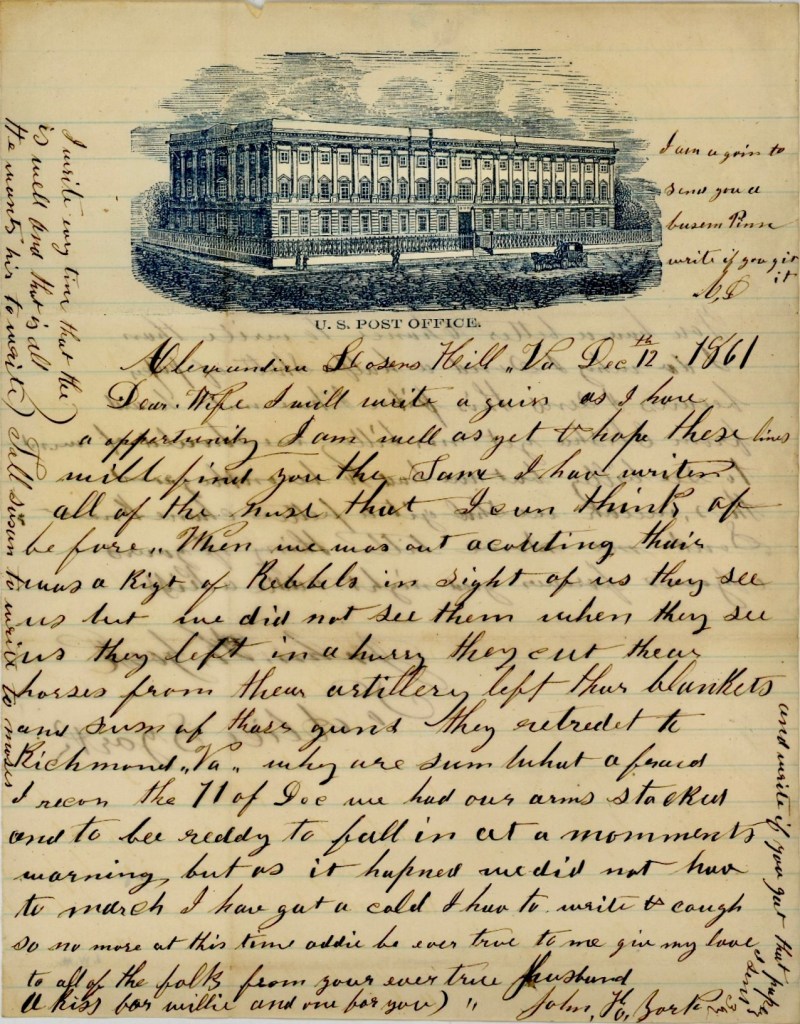 U. S. POST OFFICE.
I am a goin to
send you a
busem Pinn
write if you git
it
A, D
Alexandria Hill, Va Dec 12th 1861
Dear Wife I will write a gain as I have
a opportunity I am well as yet & hope these lines
will find you the Same I hav writen
all of the nuse that I cun think of
before, When we was out a couting thair
was a Rigt of Rebbels in sight of us they see
us but we did not see them when they see
us they left in a hurry they cut thear
horses from thear artillery left thar blankets
and sum of thair guns they retredet to
Richmond, Va, they are sum what afraid
I recon the 11 of Dec we had our arms stacked
and to bee reddy to fall in at a momments
warning, but as it hapned we did not hav
to march I have gut a cold I hav to write & cough
so no more at this time addie be ever true to me giv my love
to all of the folks from your ever true Husband
A kiss for willie and one for you) " John, H, York
I write evry time that the
is well and that is all
He wants his to write) Tell susan to write to moses
and write if you gut that paper
I sent